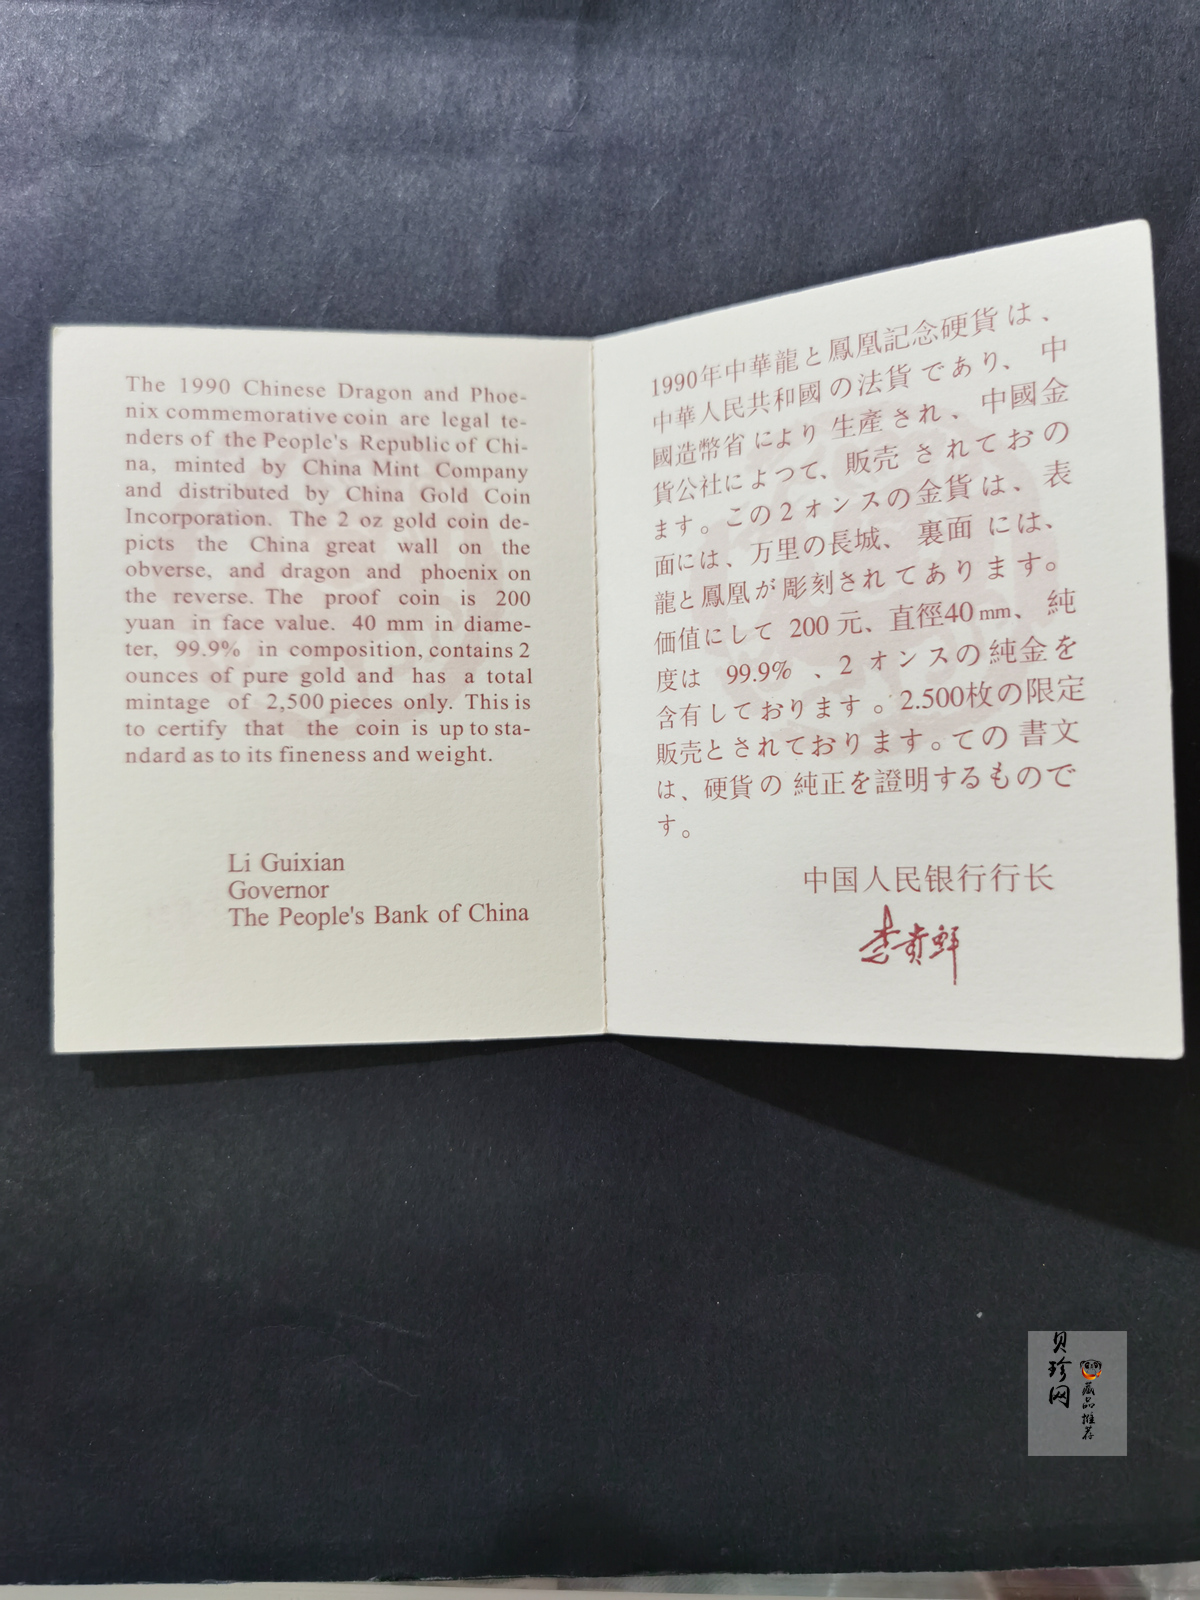 The 1990 Chinese Dragon and Phoe-
nix commemorative coin are legal te-
nders of the People's Republic of Chi-
na, minted by China Mint Company
and distributed by China Gold Coin
Incorporation. The 2 oz gold coin de-
picts the China great wall on the
obverse, and dragon and phoenix on
the reverse. The proof coin is 200
yuan in face value. 40 mm in diame-
ter, 99.9% in composition, contains 2
ounces of pure gold and has a total
mintage of 2,500 pieces only. This is
to certify that the coin is up to sta-
ndard as to its fineness and weight.
Li Guixian
Governor
The People's Bank of China
1990年中華龍と鳳凰記念硬貨は、
中華人民共和國の法貨であり、中
國造幣省により生産され、中國金
貨公社によつて、販売されておの
ます。この2オンスの金貨は、表
面には、万里の長城、裏面には、
龍と鳳凰が彫刻されてあります。
価值にして 200 元、直徑40mm、純
度は 99.9% 、2 オンスの純金を
含有しております。2.500枚の限定
販売とされております。ての書文
は、硬貨の純正を證明するもので
す。
中国人民银行行长
李贵鲜
贝珍网
藏品推荐